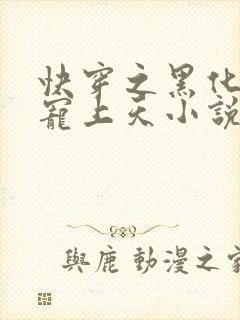 快穿之黑化
寵上天小說
與鹿 動漫之家